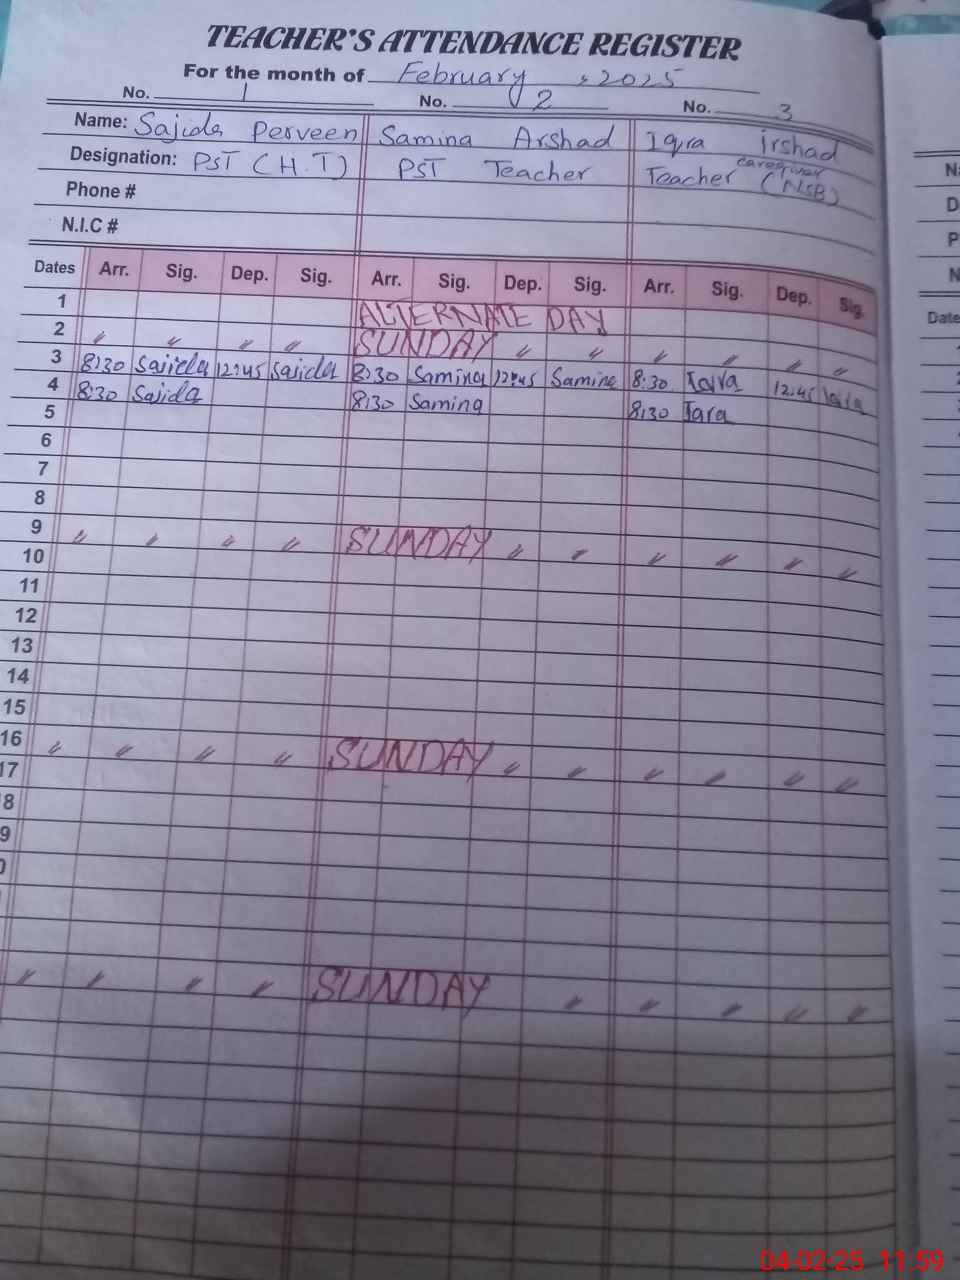 TEACHER'S ATTENDANCE REGISTER
For the month of February, 2025
No. 1 No. 2 No. 3
Name: Sajida Perveen Samina Arshad Iqra irshad
Designation: PST (H.T) PST Teacher Teacher caregiver (NSB)
Phone #
N.I.C #
Dates Arr. Sig. Dep. Sig. Arr. Sig. Dep. Sig. Arr. Sig. Dep. Sig.
1 ALTERNATE DAY
2 〃 〃 〃 〃 SUNDAY 〃 〃 〃 〃 〃 〃
3 8:30 Sajida 12:45 Sajida 8:30 Samina 12:45 Samina 8:30 Iqra 12:45 Iqra
4 8:30 Sajida 8:30 Samina 8:30 Iqra
5
6
7
8
9 〃 〃 〃 〃 SUNDAY 〃 〃 〃 〃 〃 〃
10
11
12
13
14
15
16 〃 〃 〃 〃 SUNDAY 〃 〃 〃 〃 〃 〃
17
8
9
〃 〃 〃 〃 SUNDAY 〃 〃 〃 〃 〃
Date
04-02-25 11:59